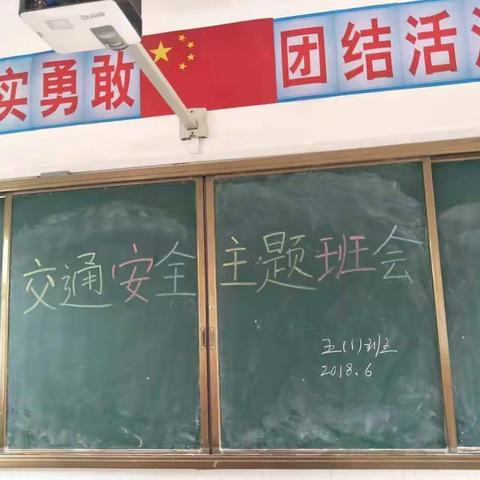 BenQ
实勇敢 团结活
交通安全 主题班会
五(1)班
2018.6